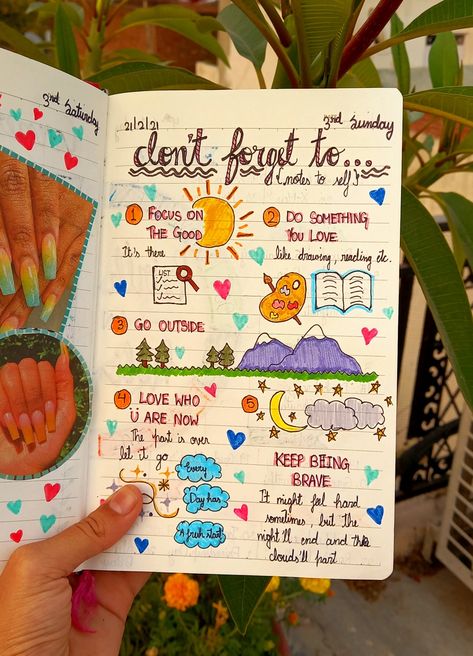 3rd Saturday
21/2/21
3rd Sunday
don't forget to...
{notes to self}
1 FOCUS ON
THE GOOD
It's there
2 DO SOMETHING
YOU LOVE
like drawing, reading etc.
LIST
3 GO OUTSIDE
4 LOVE WHO
Ü ARE NOW
The past is over
let it go
Every
Day has
a fresh start
5
KEEP BEING
BRAVE
It might feel hard
sometimes, but the
night'll end and the
clouds'll part.